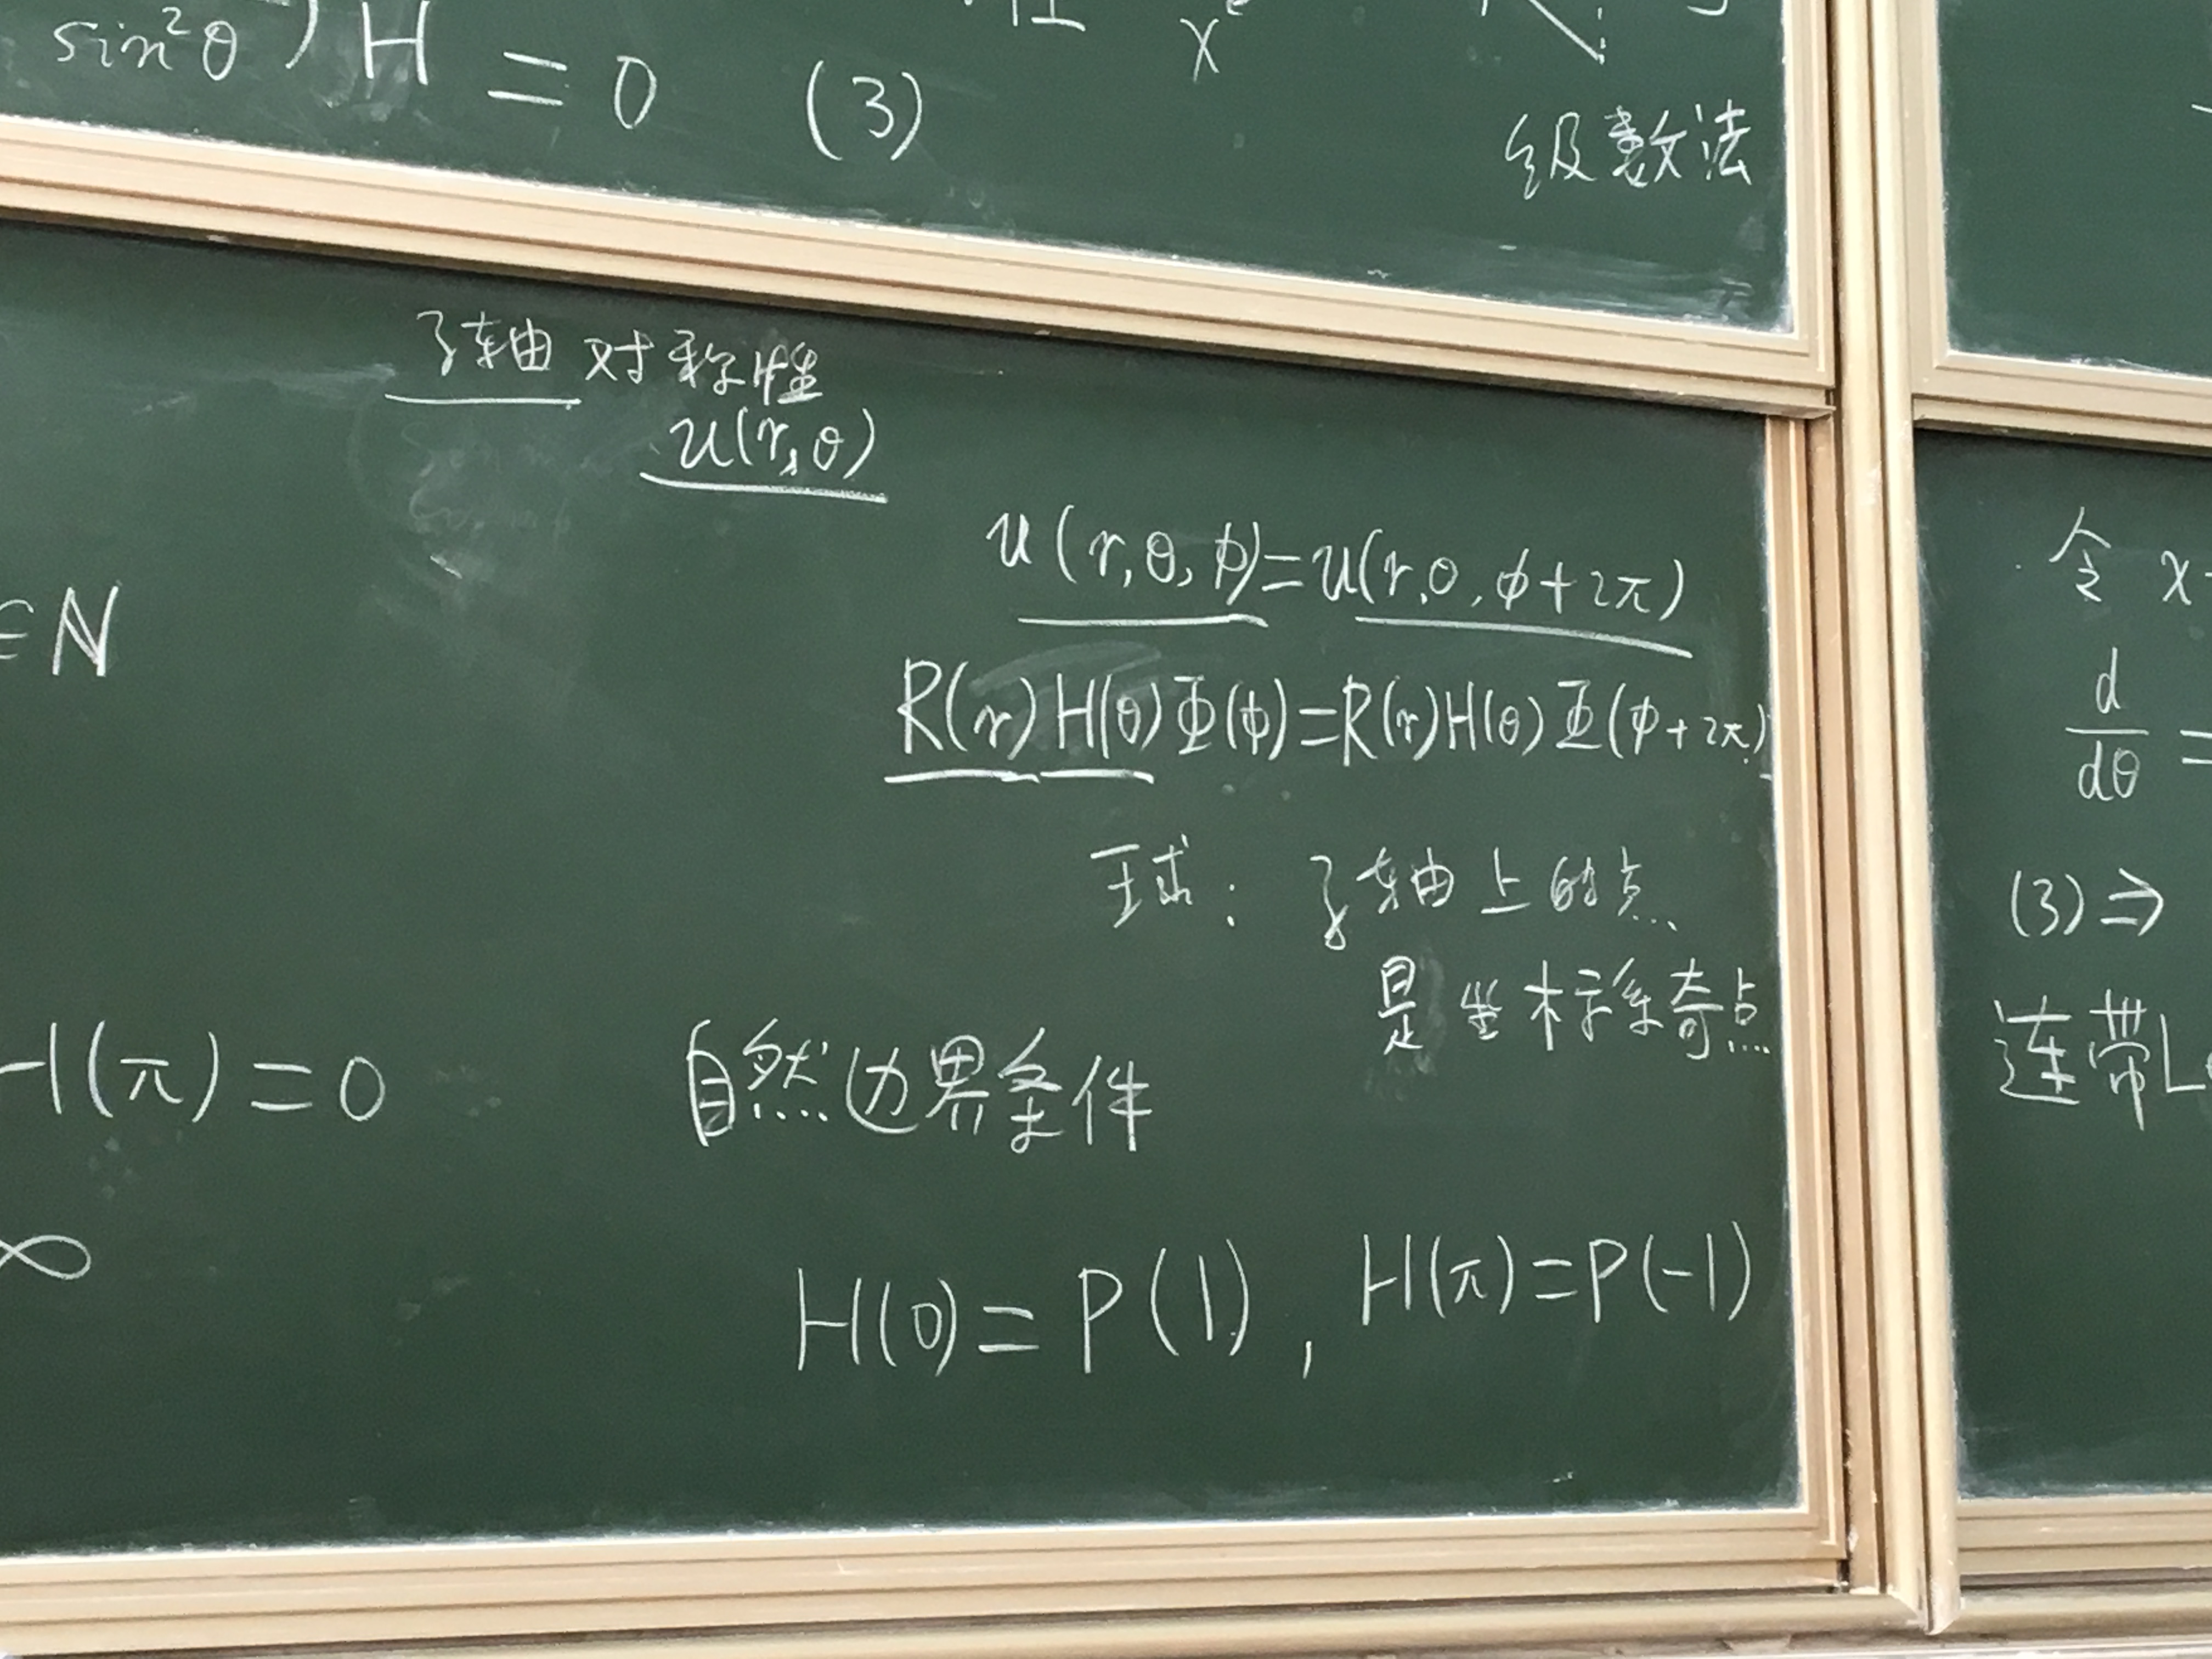 sin²θ ) H = 0 (3)
x
级数法
z轴对称性
u(r,θ)
u(r,θ,ϕ)=u(r,θ,ϕ+2π)
∈ℕ
R(r)H(θ)Φ(ϕ)=R(r)H(θ)Φ(ϕ+2π)
球: z轴上的点
是坐标系奇点
H(π)=0 自然边界条件
∞
H(0)=P(1), H(π)=P(-1)
令 x
d/dθ =
(3)⇒
连带L